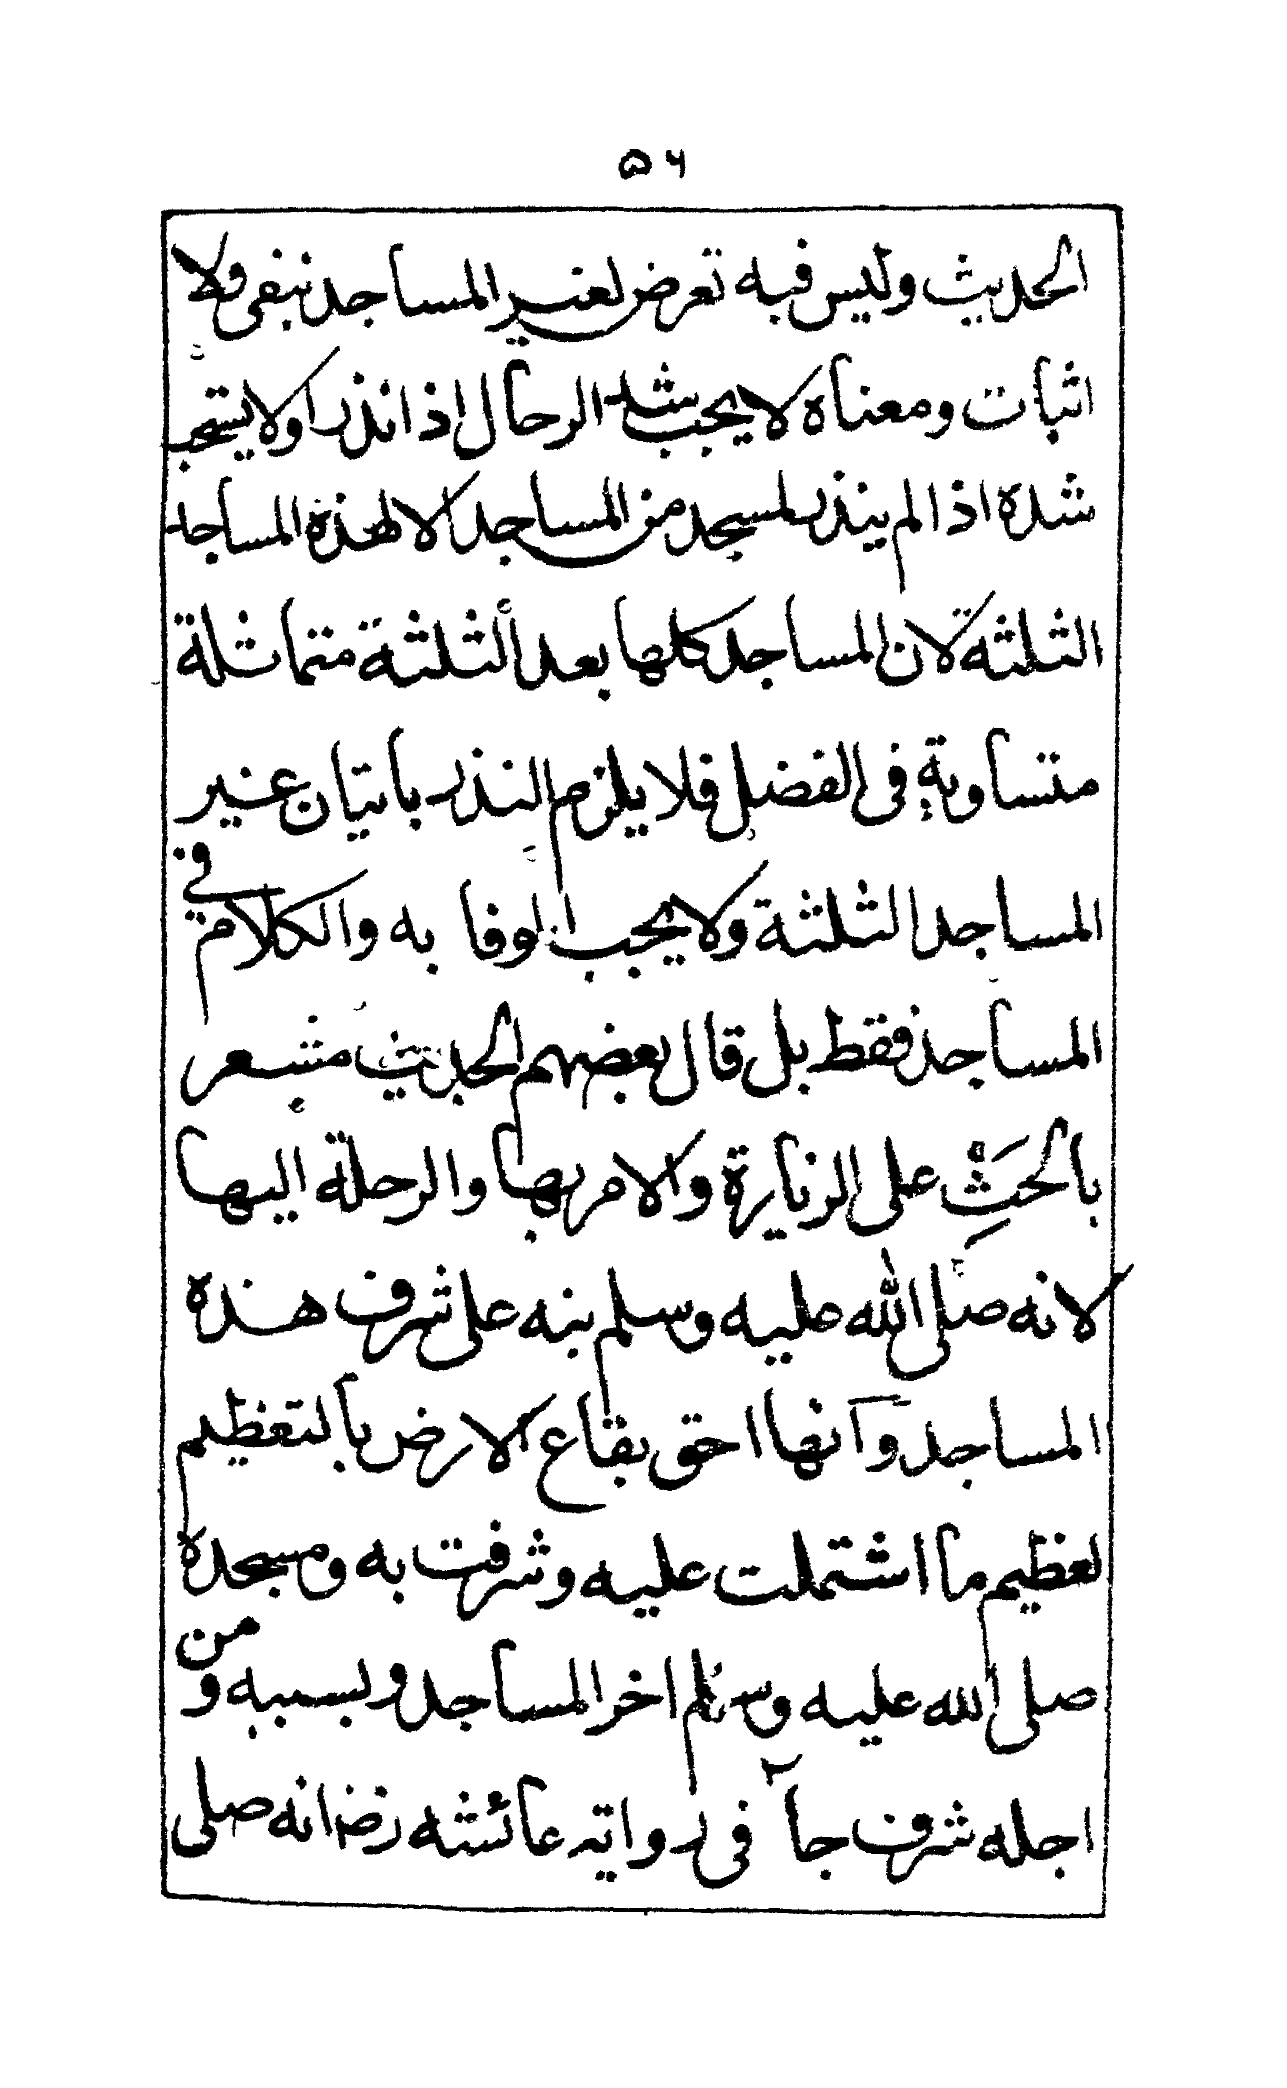 ٥٦
الحديث وليس فيه تعرض لغير المساجد بنفى ولا
اثبات ومعناه لا يجب شد الرحال اذا نذر او لا يستحب
شده اذ الم ينذر لمسجد من المساجد الا لهذه المساجد
الثلثة لان المساجد كلها بعد الثلثة متماثلة
متساوية فى الفضل فلا يلزم النذر باتيان غير
المساجد الثلثة ولا يجب الوفا به والكلام فى
المساجد فقط بل قال بعضهم الحديث مشعر
بالحث على الزيارة والامر بها والرحلة اليها
لانه صلى الله عليه وسلم نبه على شرف هذه
المساجد وانها احق بقاع الارض بالتعظيم
لعظيم ما اشتملت عليه وشرفت به ومسجده
صلى الله عليه وسلم اخر المساجد وبسببه و من
اجله شرف جا فى رواته عائشه رض انه صلى